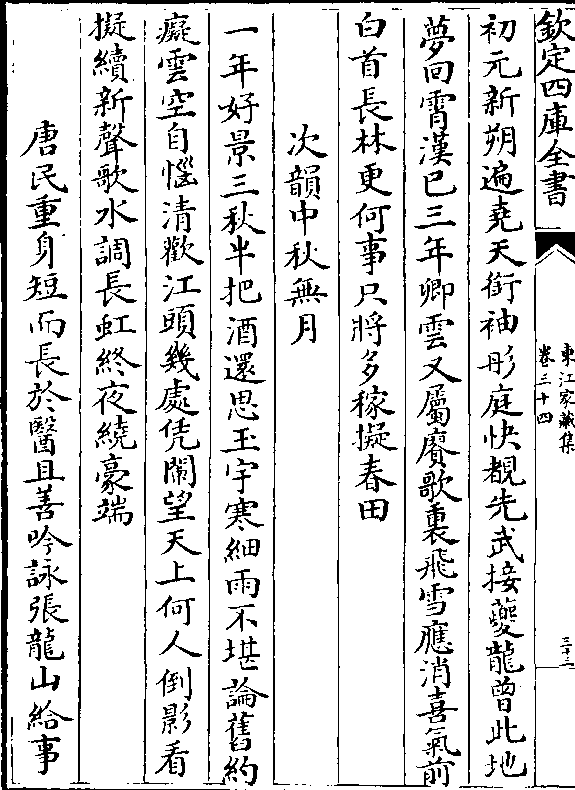 欽定四庫全書
東江家藏集
卷三十四
三十三
初元新朔遍堯天銜袖彤庭快覩先武接夔龍曾此地
夢回霄漢已三年卿雲又屬賡歌裏飛雪應消喜氣前
白首長林更何事只將多稼擬春田
次韻中秋無月
一年好景三秋半把酒還思玉宇寒細雨不堪論舊約
癡雲空自惱清歡江頭幾處凭闌望天上何人倒影看
擬續新聲歌水調長虹終夜繞豪端
唐民重身短而長於醫且善吟詠張龍山給事